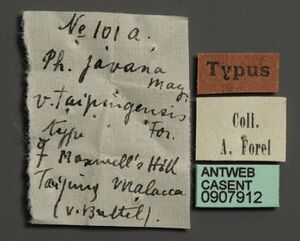 No 101a.
Ph. javana
Mayr
v. taipingensis
type For.
☿ Maxwell's Hill
Taiping Malacca
(v. Buttel).
Typus
Coll.
A. Forel
ANTWEB
CASENT
0907912